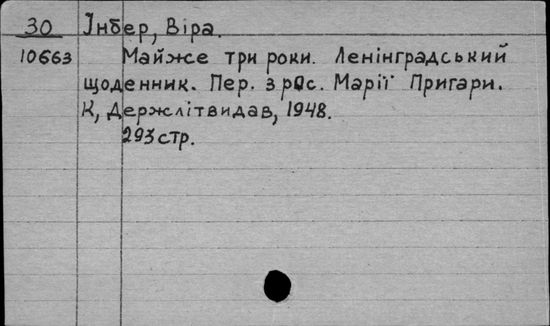 30 Інбер, Віра.
10663 Майже три роки. Ленінградський
щоденник. Пер. з рос. Марії Пригари.
К, Держлітвидав, 1948.
293 стр.